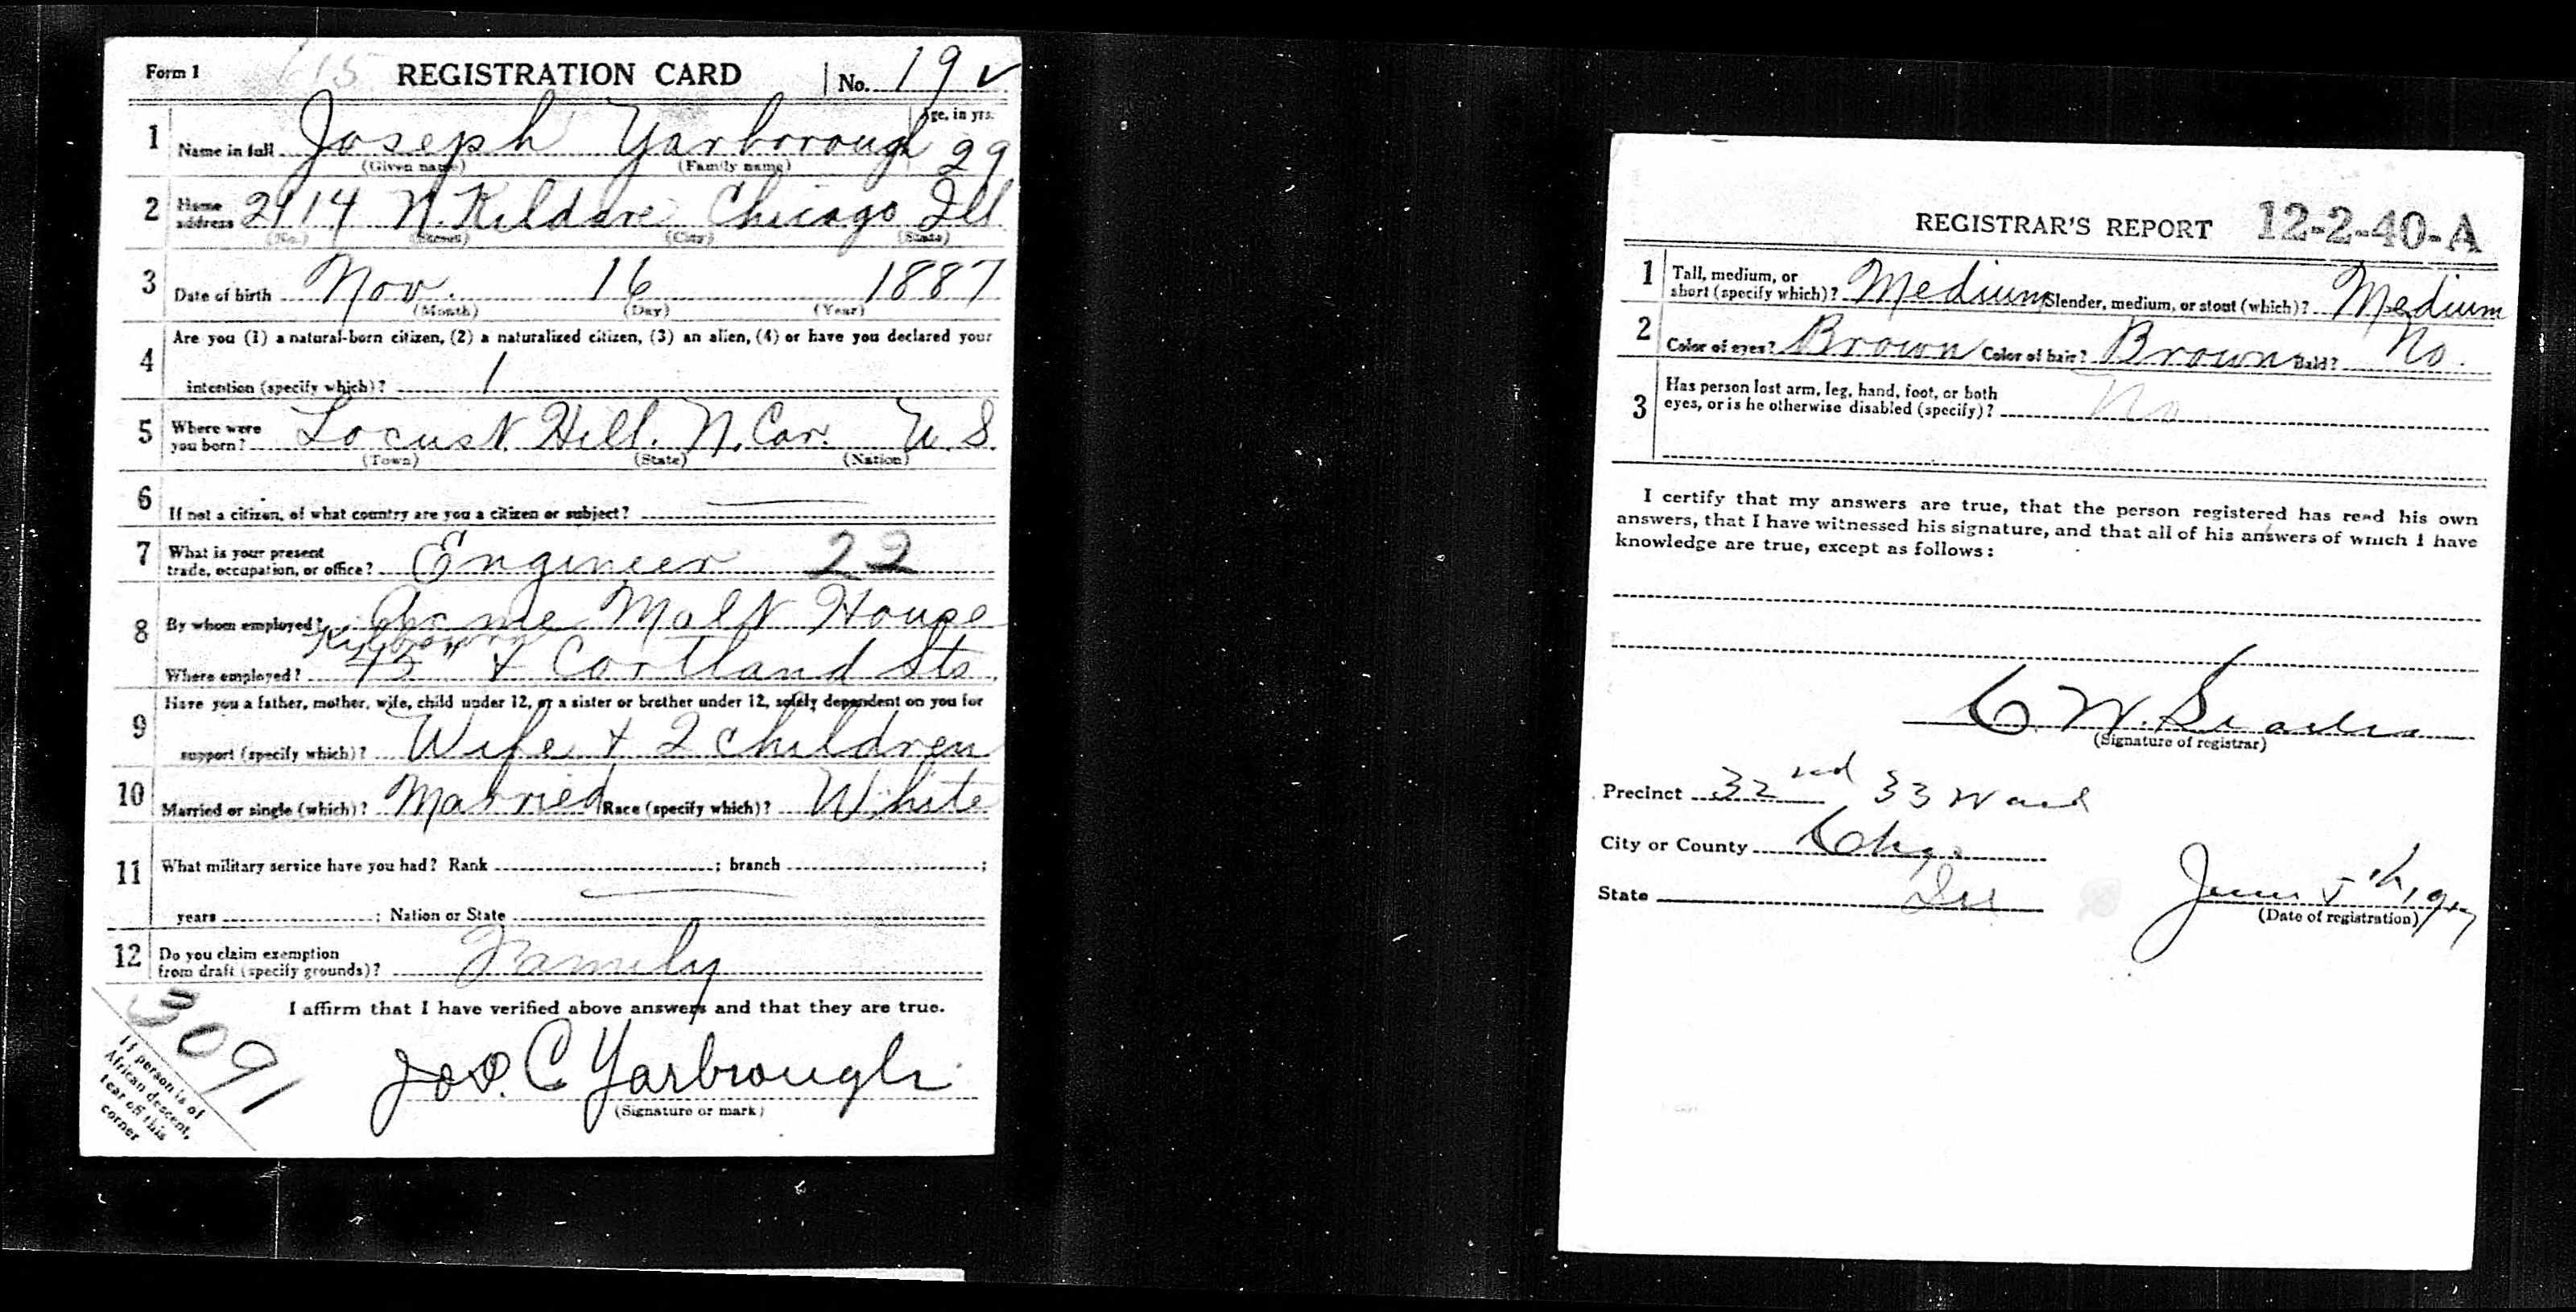 Form 1 115 REGISTRATION CARD No. 19 ✓
1 Name in full Joseph Yarborough Age, in yrs. 29
(Given name) (Family name)
2 Home address 2114 N. Kildare Chicago Ill
(No.) (Street) (City) (State)
3 Date of birth Nov. 16 1887
(Month) (Day) (Year)
4 Are you (1) a natural-born citizen, (2) a naturalized citizen, (3) an alien, (4) or have you declared your
intention (specify which)? 1
5 Where were you born? Locust Hill. N. Car. U.S.
(Town) (State) (Nation)
6 If not a citizen, of what country are you a citizen or subject?
7 What is your present trade, occupation, or office? Engineer 22
8 By whom employed? Acme Malt House
Kilbourn
Where employed? 45" + Cortland Sts.
9 Have you a father, mother, wife, child under 12, or a sister or brother under 12, solely dependent on you for
support (specify which)? Wife + 2 children
10 Married or single (which)? Married Race (specify which)? White
11 What military service have you had? Rank ; branch ;
years ; Nation or State
12 Do you claim exemption from draft (specify grounds)? Family
I affirm that I have verified above answers and that they are true.
Jos. C Yarbrough
(Signature or mark)
3091
If person is of
African descent,
tear off this
corner
REGISTRAR'S REPORT 12-2-40-A
1 Tall, medium, or short (specify which)? Medium Slender, medium, or stout (which)? Medium
2 Color of eyes? Brown Color of hair? Brown Bald? No.
3 Has person lost arm, leg, hand, foot, or both
eyes, or is he otherwise disabled (specify)? No
I certify that my answers are true, that the person registered has read his own
answers, that I have witnessed his signature, and that all of his answers of which I have
knowledge are true, except as follows:
C. W.
(Signature of registrar)
Precinct 32nd 33 Ward
City or County Chgo
State Ill June 5th, 1917
(Date of registration)